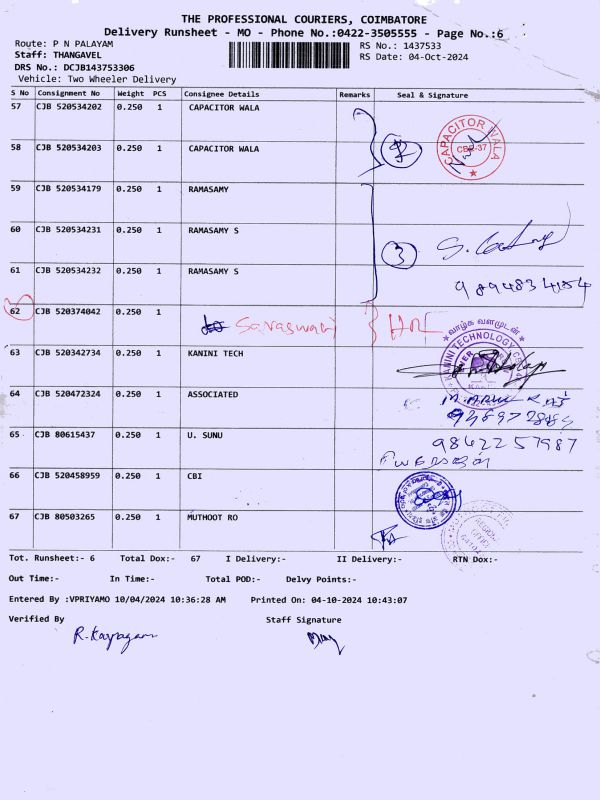 THE PROFESSIONAL COURIERS, COIMBATORE
Delivery Runsheet - MO - Phone No.:0422-3505555 - Page No.:6
Route: P N PALAYAM
RS No.: 1437533
Staff: THANGAVEL
RS Date: 04-Oct-2024
DRS No.: DCJB143753306
Vehicle: Two Wheeler Delivery
S No Consignment No Weight PCS Consignee Details Remarks Seal & Signature
57 CJB 520534202 0.250 1 CAPACITOR WALA
CAPACITOR WALA
CBE-37
58 CJB 520534203 0.250 1 CAPACITOR WALA
2
59 CJB 520534179 0.250 1 RAMASAMY
60 CJB 520534231 0.250 1 RAMASAMY S
3
61 CJB 520534232 0.250 1 RAMASAMY S
9894834154
62 CJB 520374042 0.250 1 Saraswathi
வாழ்க வளமுடன்
63 CJB 520342734 0.250 1 KANINI TECH
KANINI TECHNOLOGY
64 CJB 520472324 0.250 1 ASSOCIATED
65 CJB 80615437 0.250 1 U. SUNU
9842257987
66 CJB 520458959 0.250 1 CBI
67 CJB 80503265 0.250 1 MUTHOOT RO
Tot. Runsheet:- 6 Total Dox:- 67 I Delivery:- II Delivery:- RTN Dox:-
Out Time:- In Time:- Total POD:- Delvy Points:-
Entered By :VPRIYAMO 10/04/2024 10:36:28 AM Printed On: 04-10-2024 10:43:07
Verified By Staff Signature